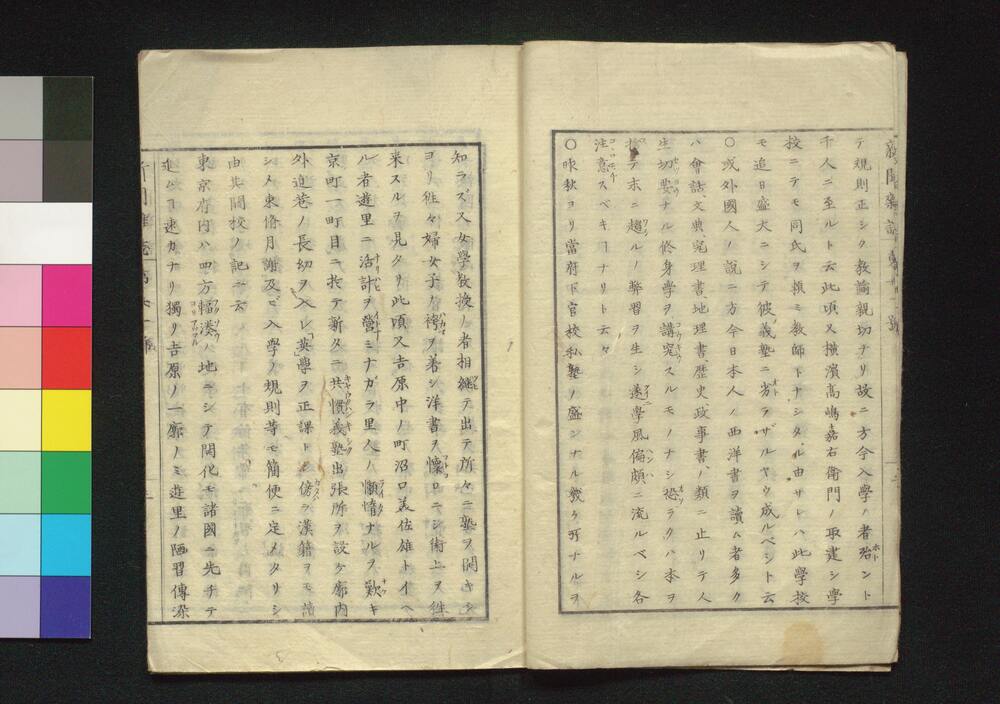 テ規則正シク教諭親切ナリ故ニ方今入學ノ者殆ント
千人ニ至ルト云此頃又横濱高嶋嘉右衛門ノ取建シ學
校ニテモ同氏ヲ頼ミ教師トナシタル由サレハ此學校
モ追日盛大ニシテ彼義塾ニ劣ラザルヤウ成ルベシト云
〇或外國人ノ説ニ方今日本人ノ西洋書ヲ讀ム者多ク
ハ會話、文典、究理書、地理書歴史政事書ノ類ニ止リテ人
生切要ナル修身學ヲ講究スルモノナシ恐ラクハ本ヲ
捨テ末ニ趨ルノ弊習ヲ生シ遂ニ學風偏頗ニ流ルベシ各
注意スベキヿナリト云々
〇昨秋ヨリ當府下官校私塾ノ盛ンナル數ケ所ナルヲ
知ラズ又女學教授ノ者相繼テ出テ所々ニ塾ヲ開キシ
ヨリ往々婦女子ノ袴ヲ着シ洋書ヲ懐ロニシ街上ヲ往
来スルヲ見タリ此頃又吉原中ノ町沼口義佐雄トイヘ
ル者遊里ニ活計ヲ營ミナガラ里人ノ懶惰ナルヲ歎キ
京町一町目ニ於テ新タニ共慣義塾出張所ヲ設ケ廓内
外近巷ノ長幼ヲ入レ英學ヲ正課トシ傍ラ漢籍ヲモ讀
シメ束脩月謝及ビ入學ノ規則等モ簡便ニ定メタリシ
由其開校ノ記ニ云
東京府内ハ四方輻湊ノ地ニシテ開化モ諸國ニ先チテ
進ムヿ速カナリ獨リ吉原ノ一廓ノミ遊里ノ陋習傳染